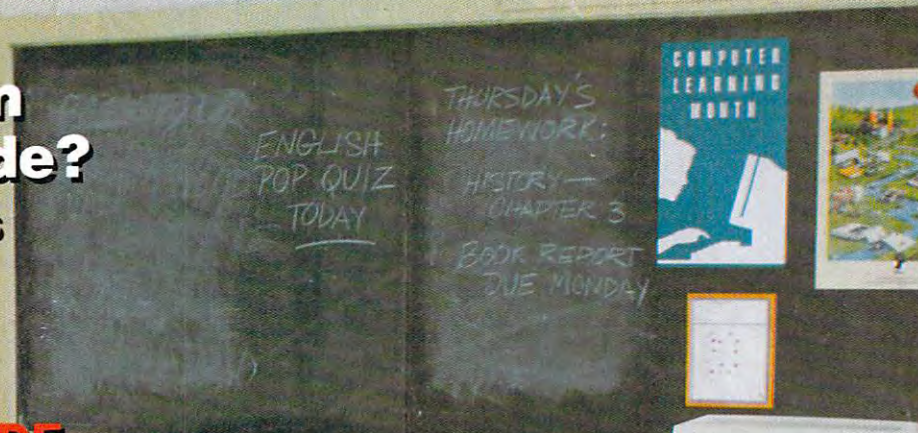 n
de?
s
ENGLISH
POP QUIZ
TODAY
THURSDAY'S
HOMEWORK:
HISTORY—
CHAPTER 3
BOOK REPORT
DUE MONDAY
COMPUTER
LEARNING
MONTH